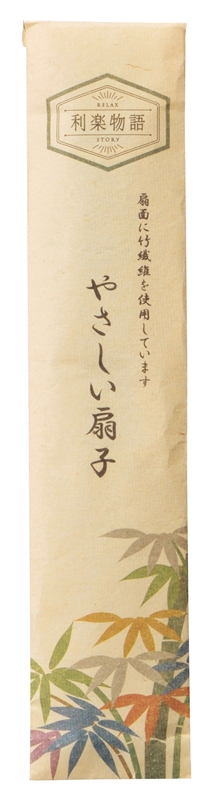 RELAX
利楽物語
STORY
扇面に竹繊維を使用しています
やさしい扇子